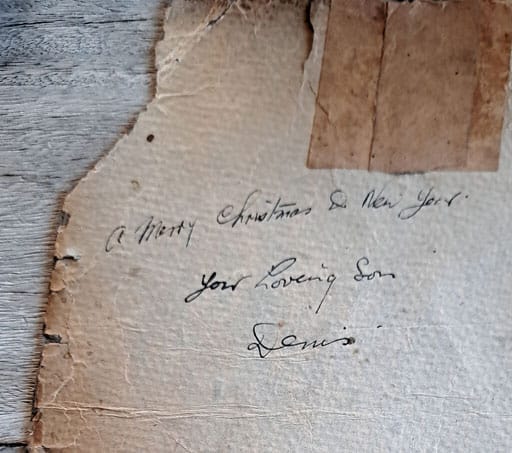 A Merry Christmas & New Year.
Your Loving Son
Denis